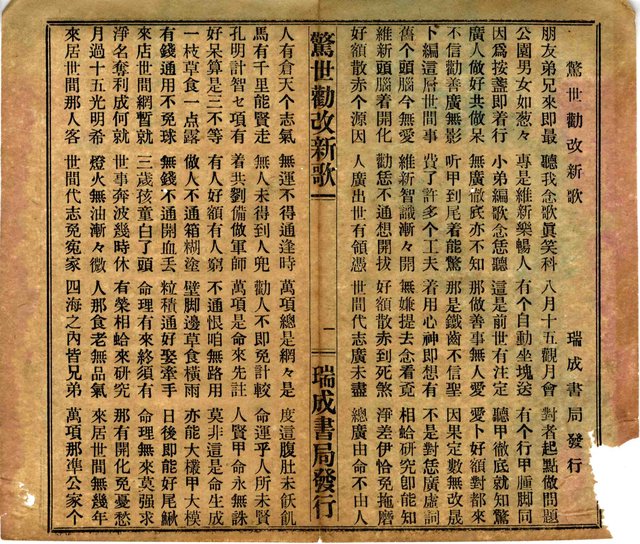 驚世勸改新歌　瑞成書局發行
朋友弟兄來即最　聽我念歌眞笑科　八月十五觀月會　對者起點做問題
公園男女如葱々　專是維新樂暢人　有个自動坐塊送　有个行甲腫脚同
因為按盞即着行　小弟編歌念恁聽　這是前世有注定　聽甲徹底就知驚
廣人做好共做呆　無廣徹底亦不知　那做善事無人愛　愛卜好額對都來
不信勸善廣無影　听甲到尾着能驚　那是鐵齒不信聖　因果定數無改晟
卜編這層世間事　費了許多个工夫　着用心神即想有　不是對恁廣虛詞
舊个頭腦今無愛　維新智識漸々開　無嫌提去念看覓　相蛤研究卽能知
維新頭腦着開化　勸恁不通想開拔　好額散赤到死煞　淨差伊恰免拖磨
好額散赤个源因　人廣出世有領憑　世間代志廣未盡　總廣由命不由人
驚世勸改新歌　一　瑞成書局發行
人有倉天个志氣　無運不得通逢時　萬項總是網々是　度這腹肚未飫飢
馬有千里能賢走　無人未得到人兜　勸人不即免計較　命運乎人所未賢
孔明計智セ項有　着共劉備做軍師　萬項是命來先註　人賢甲命永無誅
好呆算是三不等　有人好額有人窮　不通恨咱無路用　莫非這是命生成
一枝草食一点露　做人不通箱糊塗　壁脚邊草食橫雨　亦能大欉甲大模
有錢通用不免球　無錢不通開血丢　粒積通好娶牽手　日後即能好尾鰍
來店世間網暫就　三歲孩童白了頭　命理有來終須有　命理無來莫强求
淨名奪利成何就　世事奔波幾時休　有榮相蛤來研究　那有開化免憂愁
月過十五光明希　燈火無油漸々微　人那食老無品氣　來居世間無幾年
來居世間那人客　世間代志免冤家　四海之內皆兄弟　萬項那準公家个